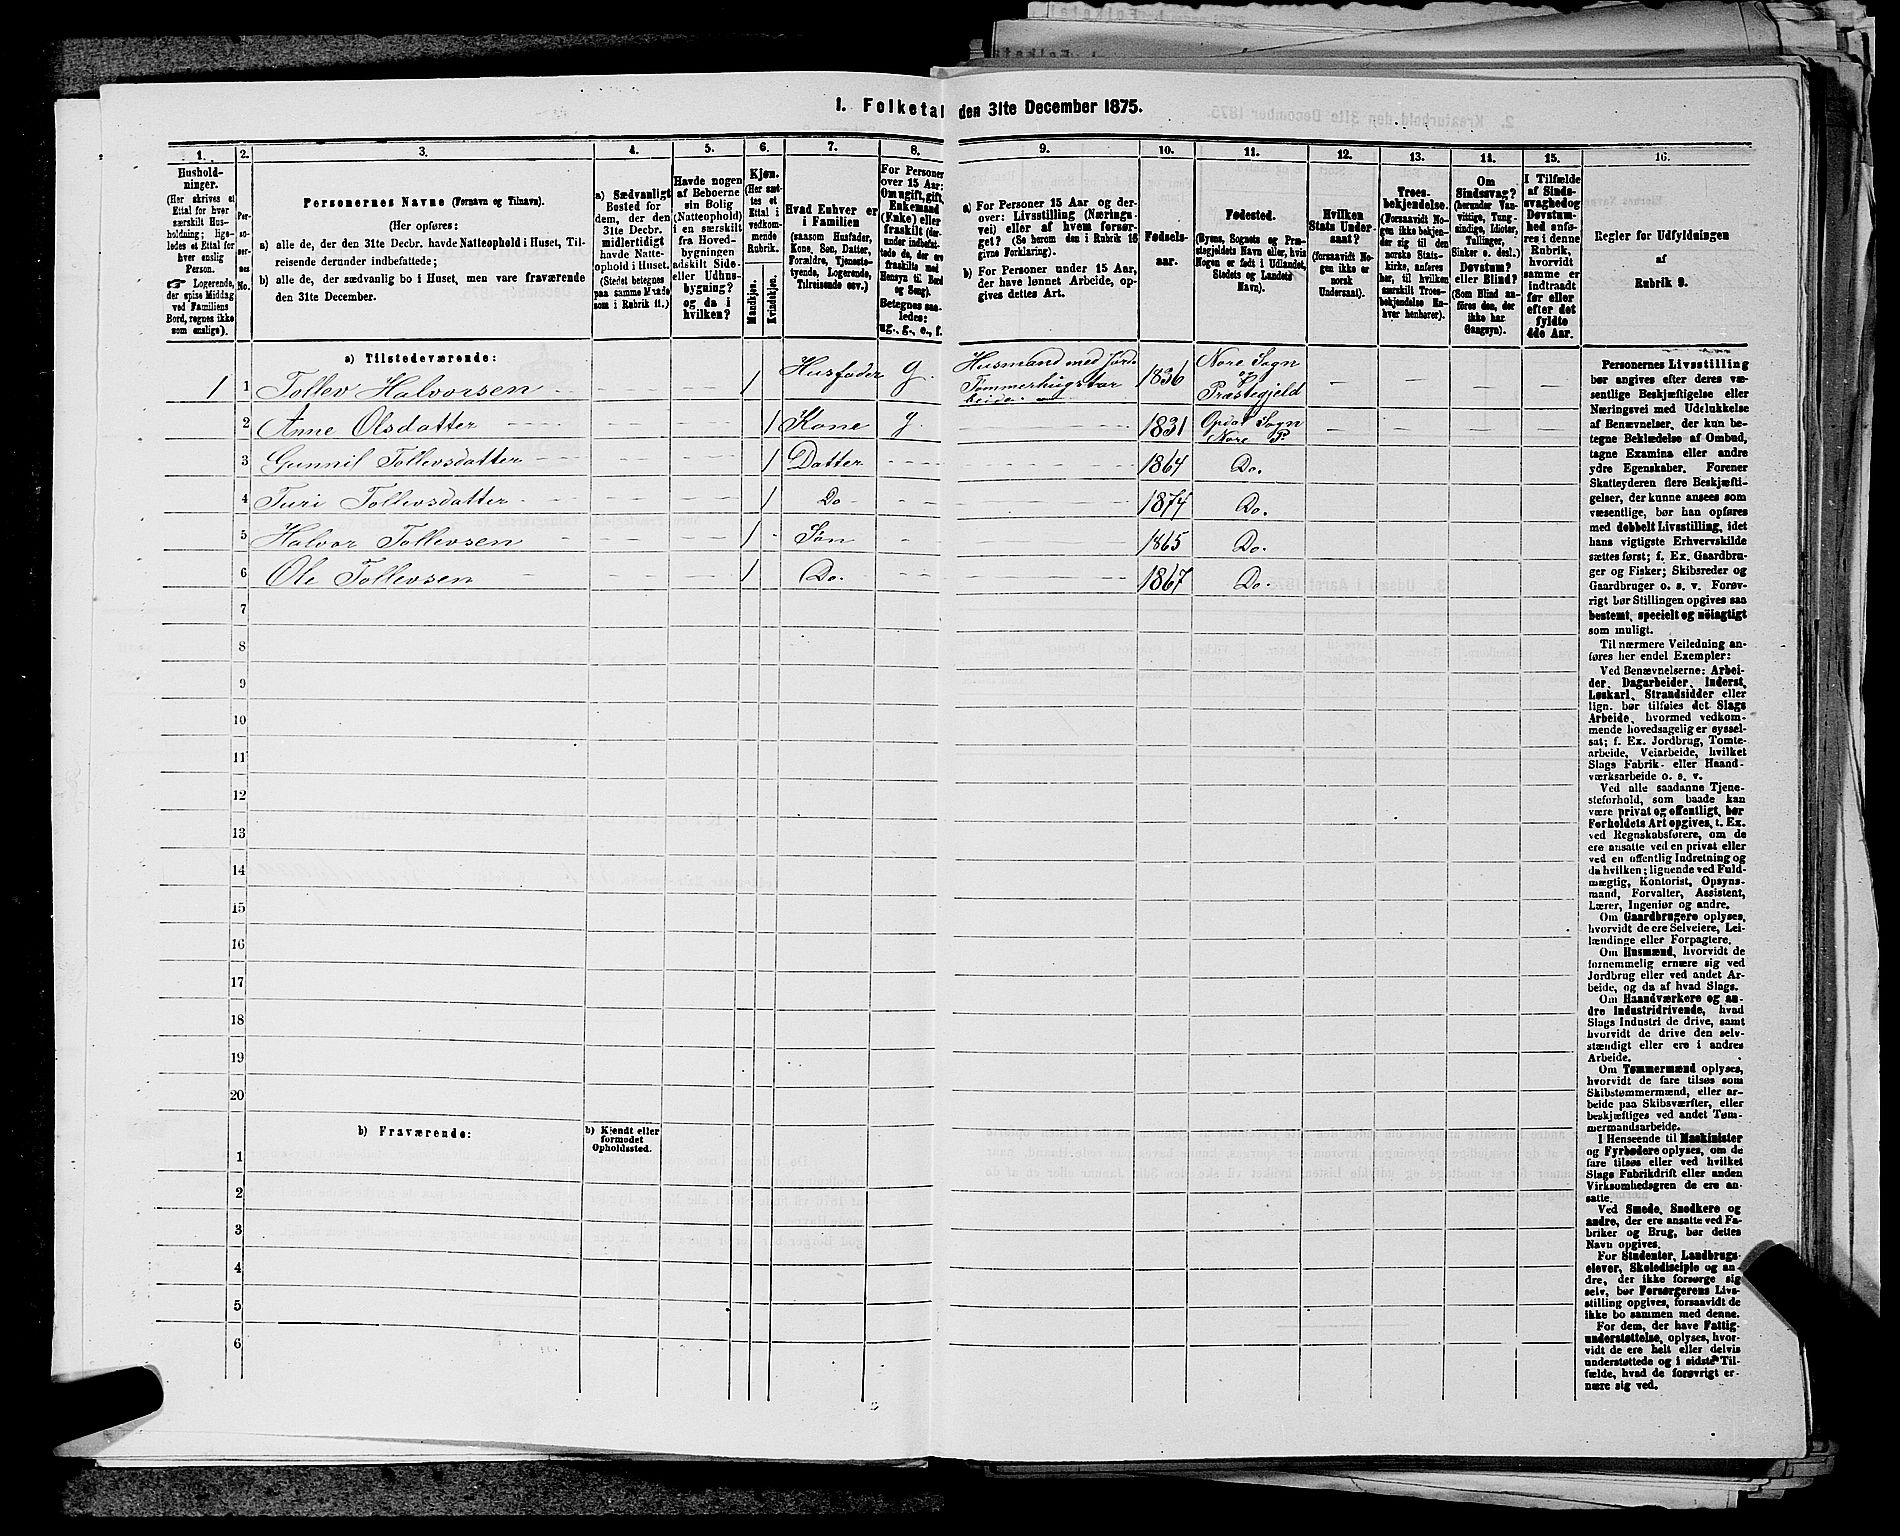 1. Folketal den 31te December 1875.
1. 2. 3. 4. 5. 6. 7. 8. 9. 10. 11. 12. 13. 14. 15. 16.
Hushold-
ninger.
(Her skrives et
Ettal for hver
særskilt Hus-
holdning; lige-
ledes et Ettal for
hver enslig
Person.
☛ Logerende,
der spise Middag
ved Familiens
Bord, regnes ikke
som enslige).
Per-
so-
ner-
nes
No.
Personernes Navne (Fornavn og Tilnavn).
(Her opføres:
a) alle de, der den 31te Decbr. havde Natteophold i Huset, Til-
reisende derunder indbefattede;
b) alle de, der sædvanlig bo i Huset, men vare fraværende
den 31te December.
a) Sædvanligt
Bosted for
dem, der den
31te Decbr.
midlertidigt
havde Natte-
ophold i Huset.
(Stedet betegnes
paa samme Maade
som i Rubrik 11.)
Havde nogen
af Beboerne
sin Bolig
(Natteophold)
i en særskilt
fra Hoved-
bygningen
adskilt Side-
eller Udhus-
bygning?
og da i
hvilken?
Kjøn.
(Her sæt-
tes et
Ettal i
vedkom-
mende
Rubrik.
Mandkjøn.
Kvindekjøn.
Hvad Enhver er
i Familien
(saasom Husfader,
Kone, Søn, Datter,
Forældre, Tjeneste-
tyende, Logerende,
Tilreisende osv.)
For Personer
over 15 Aar:
Om ugift, gift,
Enkemand
(Enke) eller
fraskilt (der-
under indbefat-
tede de, der ere
fraskilte med
Hensyn til Bord
og Seng).
Betegnes saa-
ledes:
ug., g., e., f.
a) For Personer 15 Aar og der-
over: Livsstilling (Nærings-
vei) eller af hvem forsør-
get? (Se herom den i Rubrik 16
givne Forklaring).
b) For Personer under 15 Aar,
der have lønnet Arbeide, op-
gives dettes Art.
Fødsels-
aar.
Fødested.
(Byens, Sognets og Præ-
stegjeldets Navn eller, hvis
Nogen er født i Udlandet,
Stedets og Landets
Navn).
Hvilken
Stats Under-
saat?
(forsaavidt No-
gen ikke er
norsk
Undersaat).
Troes-
bekjendelse.
(Forsaavidt No-
gen ikke bekjen-
der sig til den
norske Stats-
kirke, anføres
her, til hvilken
særskilt Troes-
bekjendelse En-
hver henhører).
Om
Sindssvag?
(herunder Van-
vittige, Tung-
sindige, Idioter,
Tullinger,
Sinker o. desl.)
Døvstum?
eller Blind?
(Som Blind an-
føres den, der
ikke har
Gangsyn).
I Tilfælde
af Sinds-
svaghed og
Døvstum-
hed anfø-
res i denne
Rubrik,
hvorvidt
samme er
indtraadt
før eller
efter det
fyldte
4de Aar.
Regler for Udfyldningen
af
Rubrik 9.
a) Tilstedeværende:
1 1 Tollev Halvorsen 1 Husfader g. Husmand med Jord 1836 Nore Sogn
og
Præstegjeld
2 Anne Olsdatter 1 Kone g. 1831 Opdal Sogn
Nore P
3 Gunnil Tollevsdatter 1 Datter 1864 Do.
4 Turi Tollevsdatter 1 Do 1874 Do.
5 Halvor Tollevsen 1 Søn 1865 Do.
6 Ole Tollevsen 1 Do. 1867 Do.
7
8
9
10
11
12
13
14
15
16
17
18
19
20
b) Fraværende:
b) Kjendt eller
formodet
Opholdssted.
1
2
3
4
5
6
Personernes Livsstilling
bør angives efter deres væ-
sentlige Beskjæftigelse eller
Næringsvei med Udelukkelse
af Benævnelser, der kun be-
tegne Beklædelse af Ombud,
tagne Examina eller andre
ydre Egenskaber. Forener
Skatteyderen flere Beskjæfti-
gelser, der kunne ansees som
væsentlige, bør han opføres
med dobbelt Livsstilling, idet
hans vigtigste Erhvervskilde
sættes først; f. Ex. Gaardbru-
ger og Fisker; Skibsreder og
Gaardbruger o. s. v. Forøv-
rigt bør Stillingen opgives saa
bestemt, specielt og nöiagtigt
som muligt.
Til nærmere Veiledning an-
føres her endel Exempler:
Ved Benævnelserne: Arbei-
der, Dagarbeider, Inderst,
Løskarl, Strandsidder eller
lign. bør tilføies det Slags
Arbeide, hvormed vedkom-
mende hovedsagelig er syssel-
sat; f. Ex. Jordbrug, Tomte-
arbeide, Veiarbeide, hvilket
Slags Fabrik- eller Haand-
værksarbeide o. s. v.
Ved alle saadanne Tjene-
steforhold, som baade kan
være privat og offentligt, bør
Forholdets Art opgives, t. Ex.
ved Regnskabsførere, om de
ere ansatte ved en privat eller
ved en offentlig Indretning og
da hvilken; lignende ved Fuld-
mægtig, Kontorist, Opsyns-
mand, Forvalter, Assistent,
Lærer, Ingeniør og andre.
Om Gaardbrugere oplyses,
hvorvidt de ere Selveiere, Lei-
lændinge eller Forpagtere.
Om Husmænd, hvorvidt de
fornemmelig ernære sig ved
Jordbrug eller ved andet Ar-
beide, og da af hvad Slags.
Om Haandværkere og an-
dre Industridrivende, hvad
Slags Industri de drive, samt
hvorvidt de drive den selv-
stændigt eller ere i andres
Arbeide.
Om Tømmermænd oplyses,
hvorvidt de fare tilsøs som
Skibstømmermænd, eller ar-
beide paa Skibsværfter, eller
beskjæftiges ved andet Tøm-
mermandsarbeide.
I Henseende til Maskinister
og Fyrbødere oplyses, om de
fare tilsøs eller ved hvilket
Slags Fabrikdrift eller anden
Virksomhedsgren de ere an-
satte.
Ved Smede, Snedkere og
andre, der ere ansatte ved Fa-
briker og Brug, bør dettes
Navn opgives.
For Studenter, Landbrugs-
elever, Skoledisciple og an-
dre, der ikke forsørge sig
selv, bør Forsørgerens Livs-
stilling opgives, forsaavidt de
ikke bo sammen med denne.
For dem, der have Fattig-
understøttelse, oplyses, hvor-
vidt de ere helt eller delvis
understøttede og i sidste Til-
fælde, hvad de forøvrigt er-
nære sig ved.